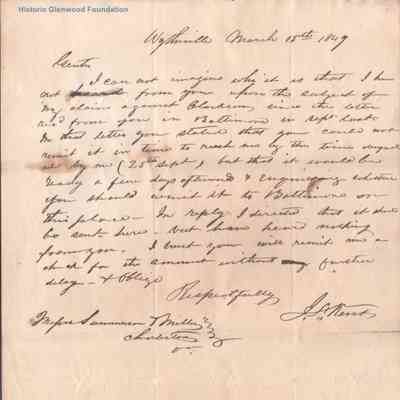 Historic Glenwood Foundation
Wytheville March 15th 1849
Gents
I can not imagine why it is that I
not from you upon the subject of
my claim against Clarkson, since the letter
recd from you in Baltimore in Sept last
In that letter you stated that you could not
remit it in time to reach me by the time
by me (20th Sept) but that it would be
ready a few days afterward & Enquiring whether
you should remit it to Baltimore or
this place - In reply I directed that it
be sent here - but have heard nothing
from you. I trust you will remit me a
check for the amount without any further
delay - & Oblige
Respectfully
J. Kent
Messrs Summers & Miller
Charleston
Va